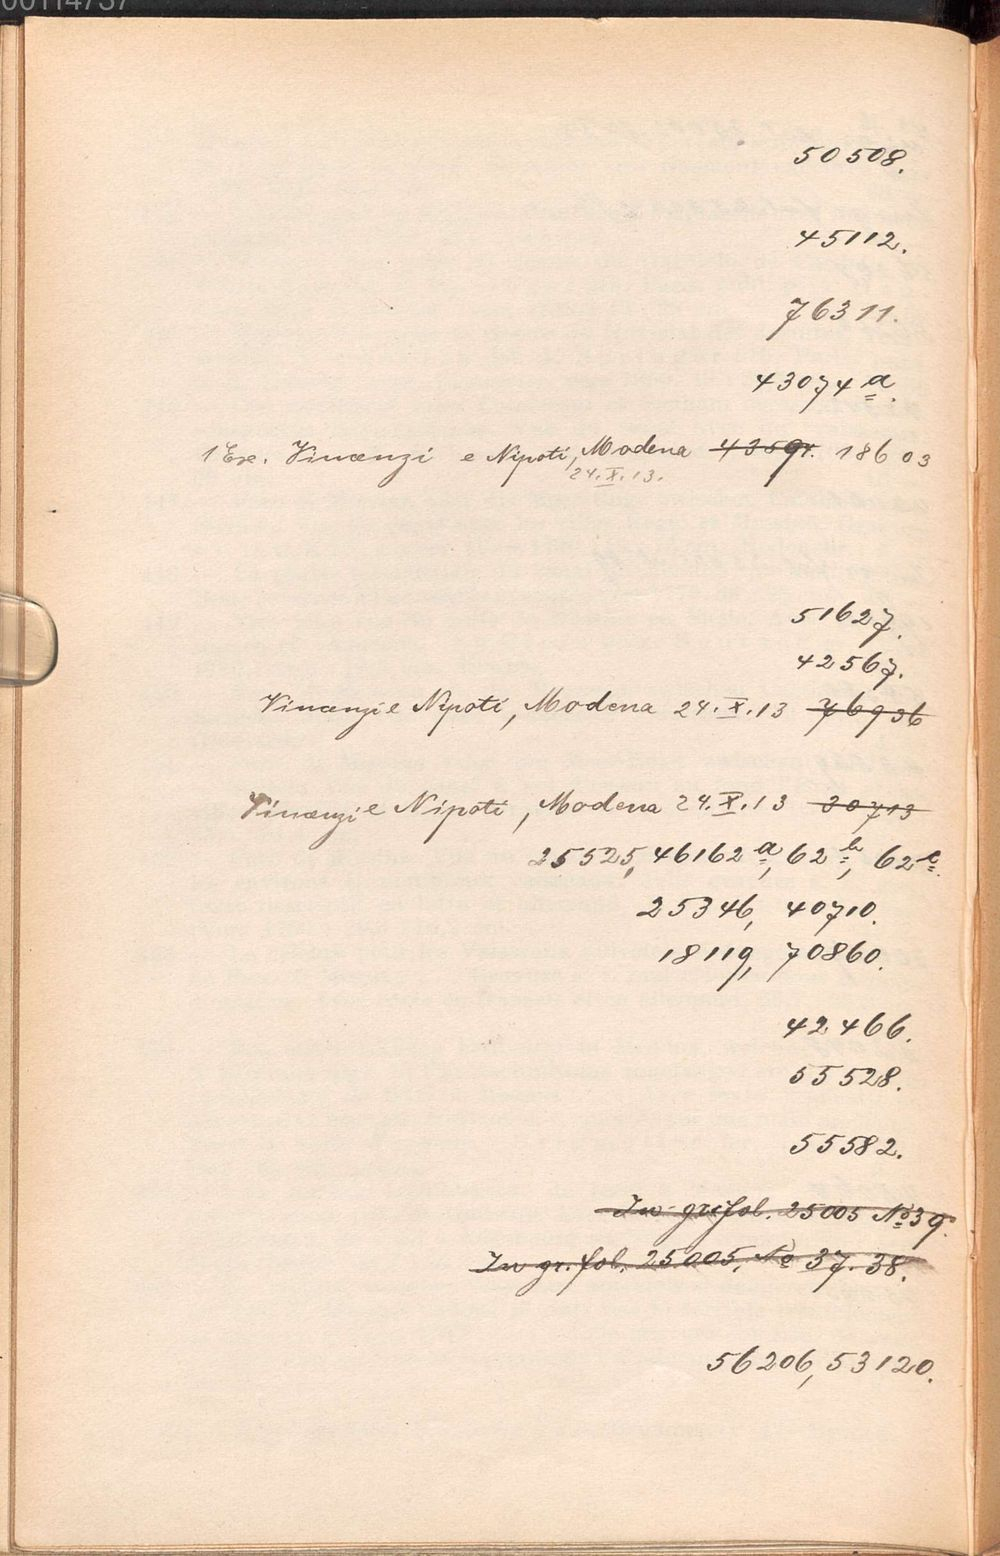 00114737
50508.
45112.
76311.
43074 a.
1 Ex. Vincenzi e Nipoti, Modena 18603
24.X.13.
51627.
42567.
Vincenzi e Nipoti, Modena 24.X.13 76936
Vincenzi e Nipoti, Modena 24.X.13 20713
25525, 46162 a, 62 b, 62 c.
25346, 40710.
18119, 70860.
42466.
55528.
55582.
In gr. fol. 25005 No 39.
In gr. fol. 25005, No 37. 38.
56206, 53120.